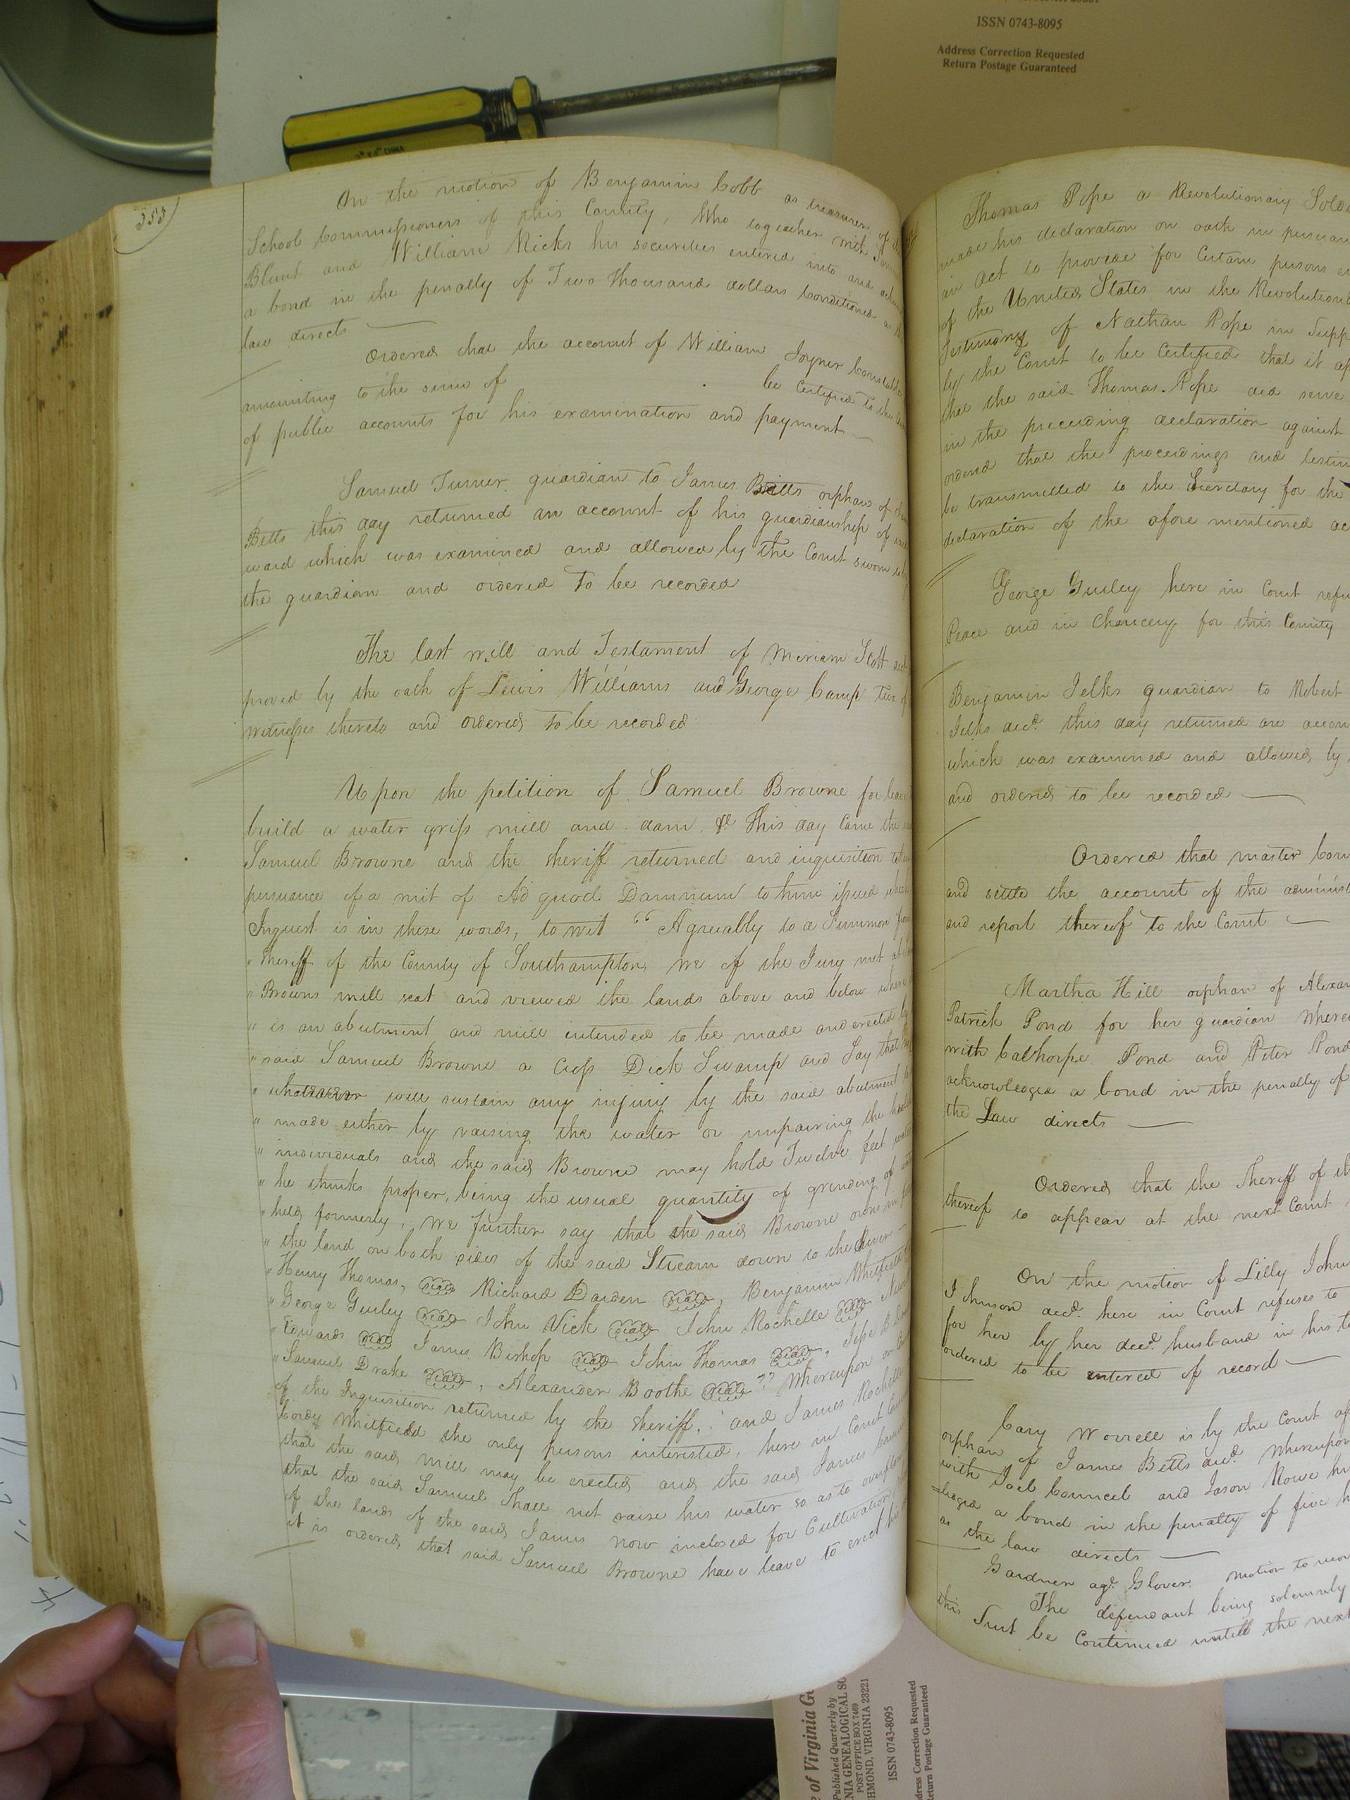 ISSN 0743-8095
Address Correction Requested
Return Postage Guaranteed
353
On the motion of Benjamin Cobb as treasurer of
School Commissioners of this County, Who together with
Blunt and William Ricks his securities entered into and
a bond in the penalty of Two thousand dollars Conditioned as
law directs
Ordered that the account of William Joyner Constable
amounting to the sum of be Certified to the
of public accounts for his examination and payment
Samuel Turner guardian to James Betts orphan of
Betts this day returned an account of his guardianship of
ward which was examined and allowed by the Court sworn to
the guardian and ordered to be recorded
The last will and Testament of Miriam Scott
proved by the oath of Lewis Williams and George Camp two
witnesses thereto and ordered to be recorded
Upon the petition of Samuel Browne for leave
build a water grist mill and dam &c This day came the
Samuel Browne and the sheriff returned and inquisition
pursuance of a writ of Ad quod Damnum to him issued
Inquest is in these words, to wit "Agreeably to a Summon
" Sheriff of the County of Southampton we of the Jury met at
" Browns mill seat and viewed the lands above and below where
" is an abutment and mill intended to be made and erected by
" said Samuel Browne a Cross Dick Swamp and Say that
" whatsoever will sustain any injury by the said abutment
" made either by raising the water or impairing the health
" individuals and the said Browne may hold Twelve feet
" he thinks proper, being the usual quantity of grinding
" held formerly, We further say that the said Browne owns
" the land on both sides of the said Stream down to the River
" Henry Thomas, seal Richard Darden seal, Benjamin Whitfield
" George Gurley seal John Vick seal John Rochelle seal
" Edwards seal James Bishop seal John Thomas seal,
" Samuel Drake seal, Alexander Boothe seal" Whereupon on
of the Inquisition returned by the Sheriff, and James Rochelle
Cordy Whitfield the only persons interested, here in Court
that the said mill may be erected and the said James
that the said Samuel shall not raise his water so as to overflow
of the lands of the said James now inclosed for Cultivation
it is ordered that said Samuel Browne have leave to erect his
Thomas Pope a Revolutionary
made his declaration on oath in
an act to provide for Certain persons
of the United States in the
Testimony of Nathan Pope in
by the Court to be Certified that it
that the said Thomas Pope did serve
in the preceeding declaration against
ordered that the proceedings and
be transmitted to the Secretary for the
declaration of the afore mentioned
George Gurley here in Court
Peace and in Chancery for this County
Benjamin Jelks guardian to Robert
Jelks decd. this day returned an
which was examined and allowed by
and ordered to be recorded
Ordered that master
and settle the account of the
and report thereof to the Court
Martha Hill orphan of
Patrick Pond for her guardian
with Calthorpe Pond and Peter Pond
acknowledged a bond in the penalty of
the Law directs
Ordered that the Sheriff of
thereof to appear at the next Court
On the motion of Lilly
Johnson decd. here in Court refuses to
for her by her decd. husband in his
ordered to be entered of record
Cary Worrell is by the Court
orphan of James Betts decd. Whereupon
with Joel Councel and Jason Rowe
a bond in the penalty of five
as the law directs
Gardner agt. Glover motion to
The defendant being solemnly
this Suit be Continued untill the next
of Virginia
Published Quarterly by
POST OFFICE BOX 7469
VIRGINIA 23221
ISSN 0743-8095
Address Correction Requested
Return Postage Guaranteed